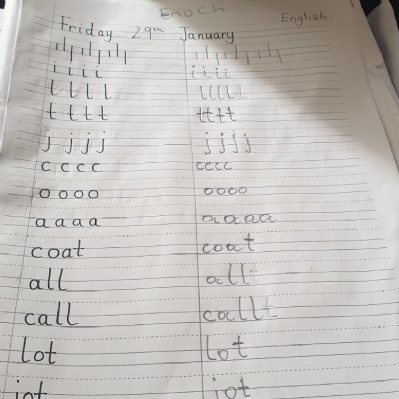 Enoch
English.
Friday 29th January
i i i i i i i i
l l l l l l l l l
t t t t t t t t
j j j j j j j j
c c c c c c c c
o o o o o o o o
a a a a a a a a a
coat coat
all all
call call
lot lot
jot jot